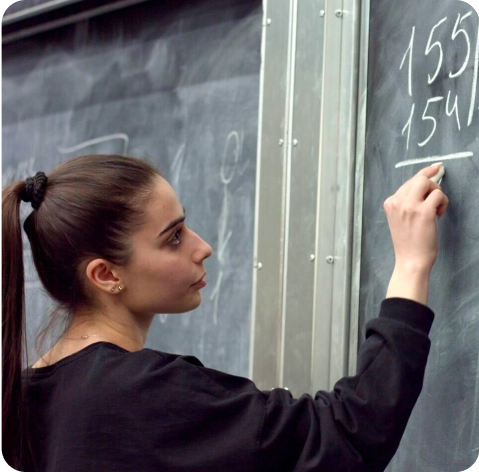 155
154